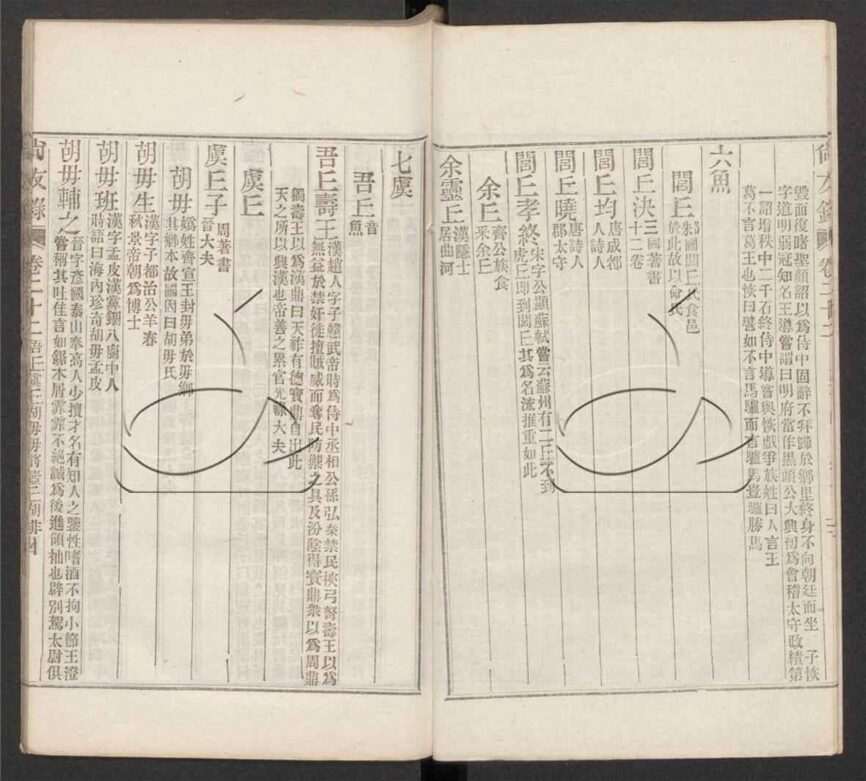 尚友錄
卷二十二
毀面復睹聖顏詔以爲侍中固辭不拜歸於鄉里終身不向朝廷而坐 子恢
字道明弱冠知名王導嘗謂曰明府當作黑頭公大興初爲會稽太守政績第
一詔增秩中二千石終侍中導嘗與恢戲爭族姓曰人言王
葛不言葛王也恢曰譬如不言馬驢而言驢馬豈驢勝馬
六魚
閭丘
邾國閭丘氏食邑
於此故以命氏
閭丘決
三國著書
十二卷
閭丘均
唐成都
人詩人
閭丘曉
唐詩人
郡太守
閭丘孝終
宋字公顯蘇軾嘗云蘇州有二丘不到
虎丘卽到閭丘其爲名流推重如此
余丘
齊公族食
釆余丘
余靈丘
漢隱士
居曲河
七虞
吾丘
音
魚
吾丘壽王
漢趙人字子贛武帝時爲侍中丞相公孫弘奏禁民挾弓弩壽王以爲
無益於禁奸徒擅賊威而奪民防禦之具及汾陰得寶鼎衆以爲周鼎
獨壽王以爲漢鼎曰天祚有德寶鼎自出此
天之所以興漢也帝善之累官光祿大夫
虞丘
虞丘子
周著書
晉大夫
胡毋
嬀姓齊宣王封毋弟於毋鄉
其鄉本故國因曰胡毋氏
胡毋生
漢字子都治公羊春
秋景帝朝爲博士
胡毋班
漢字孟皮漢黨錮八廚中人
時語曰海內珍奇胡毋孟皮
胡毋輔之
晉字彥國泰山奉高人少擅才名有知人之鑒性嗜酒不拘小節王澄
嘗稱其吐佳言如鋸木屑霏霏不絕誠爲後進領袖也辟別駕太尉俱
尚友錄
卷二十二